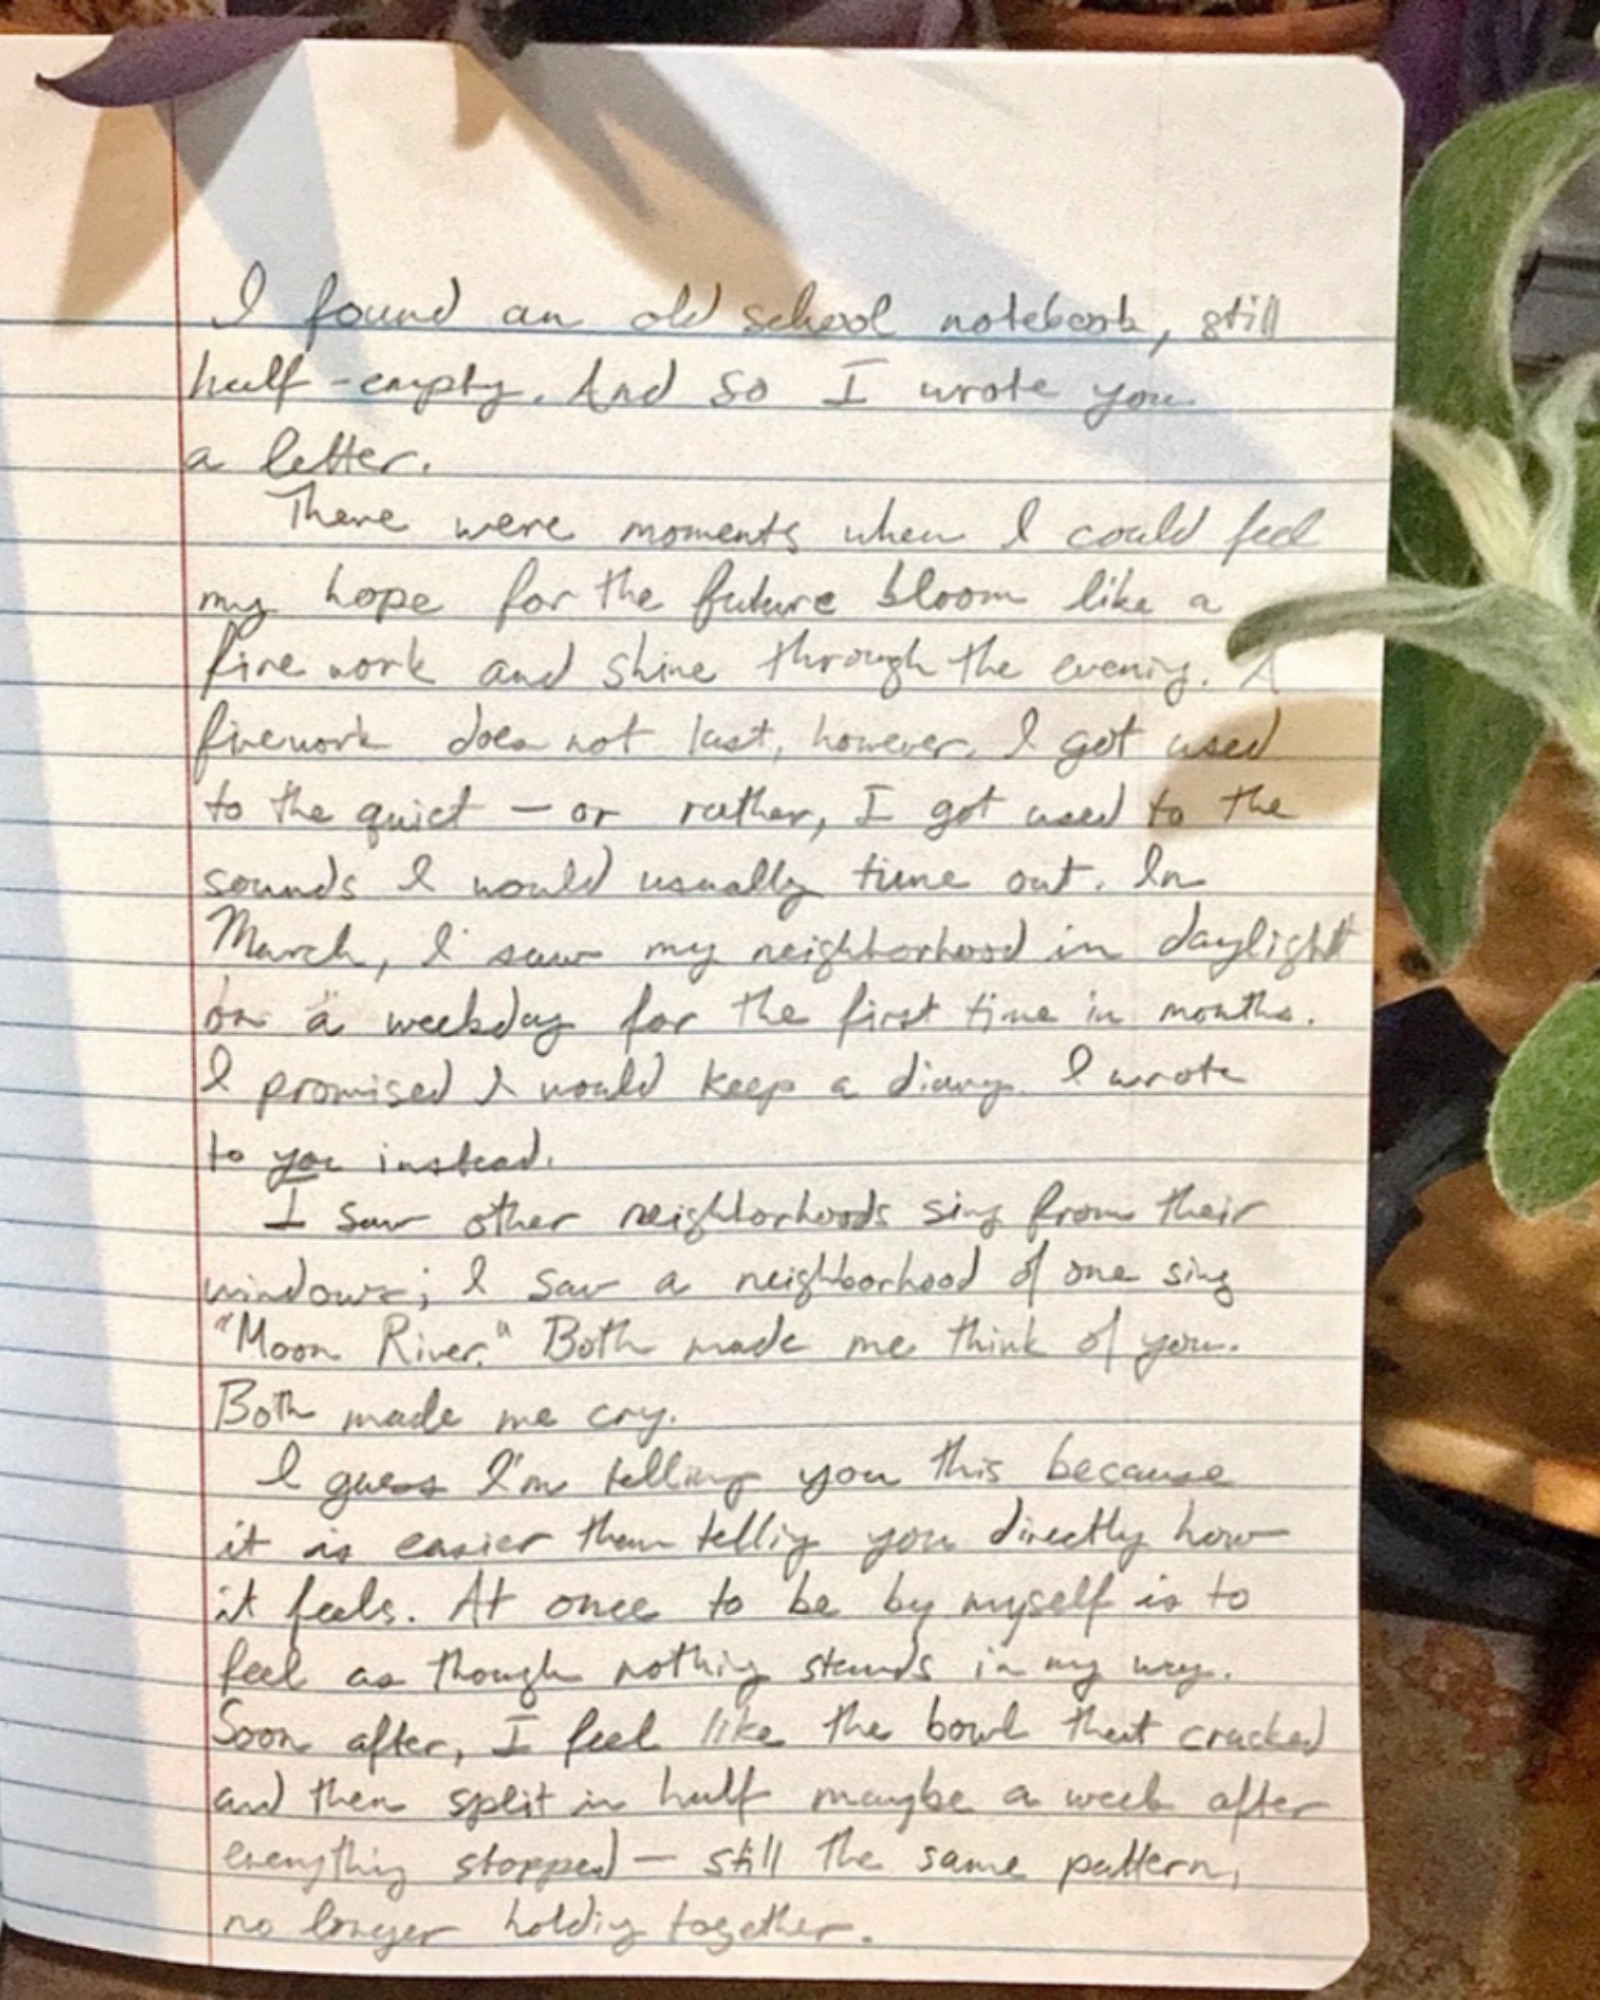 I found an old school notebook, still
half-empty. And so I wrote you
a letter.
There were moments when I could feel
my hope for the future bloom like a
firework and shine through the evening. A
firework does not last, however. I got used
to the quiet — or rather, I got used to the
sounds I would usually tune out. In
March, I saw my neighborhood in daylight
on a weekday for the first time in months.
I promised I would keep a diary. I wrote
to you instead.
I saw other neighborhoods sing from their
windows; I saw a neighborhood of one sing
"Moon River." Both made me think of you.
Both made me cry.
I guess I'm telling you this because
it is easier than telling you directly how
it feels. At once to be by myself is to
feel as though nothing stands in my way.
Soon after, I feel like the bowl that cracked
and then split in half maybe a week after
everything stopped — still the same pattern,
no longer holding together.